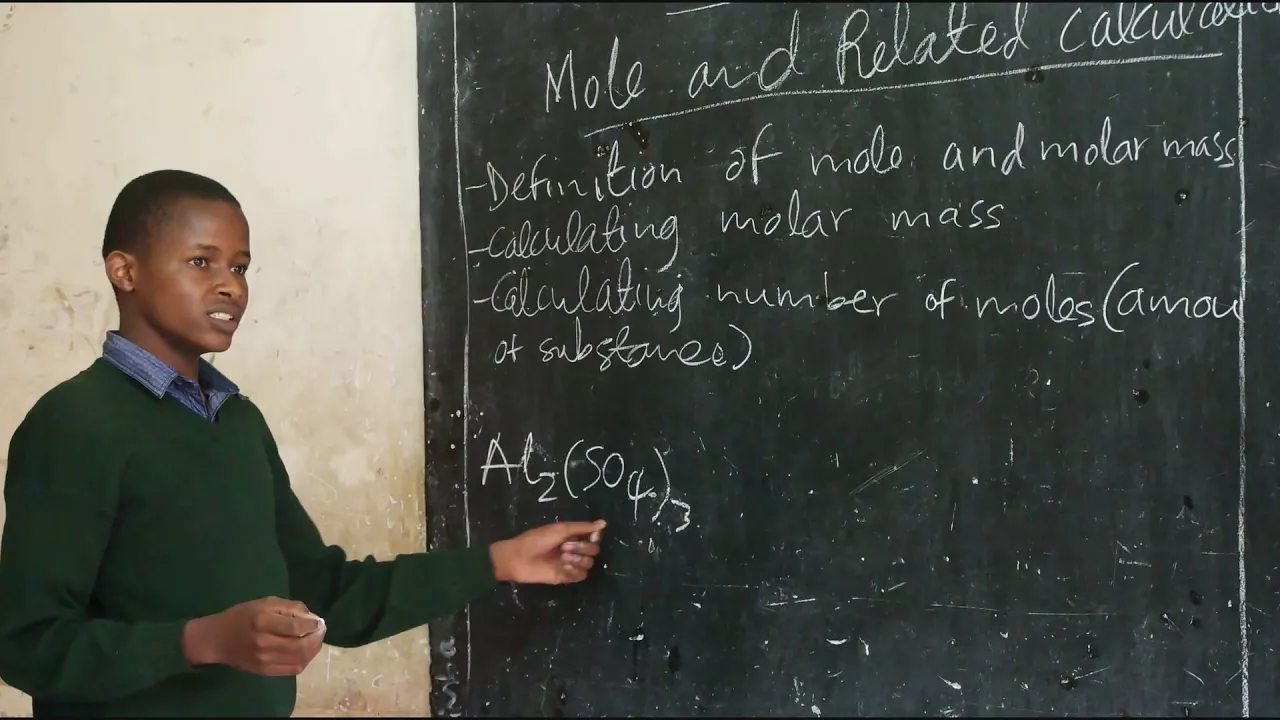 Mole and Related Calculatio
-Definition of mole and molar mass
-Calculating molar mass
-Calculating number of moles (amou
of substance)
Al₂(SO₄)₃